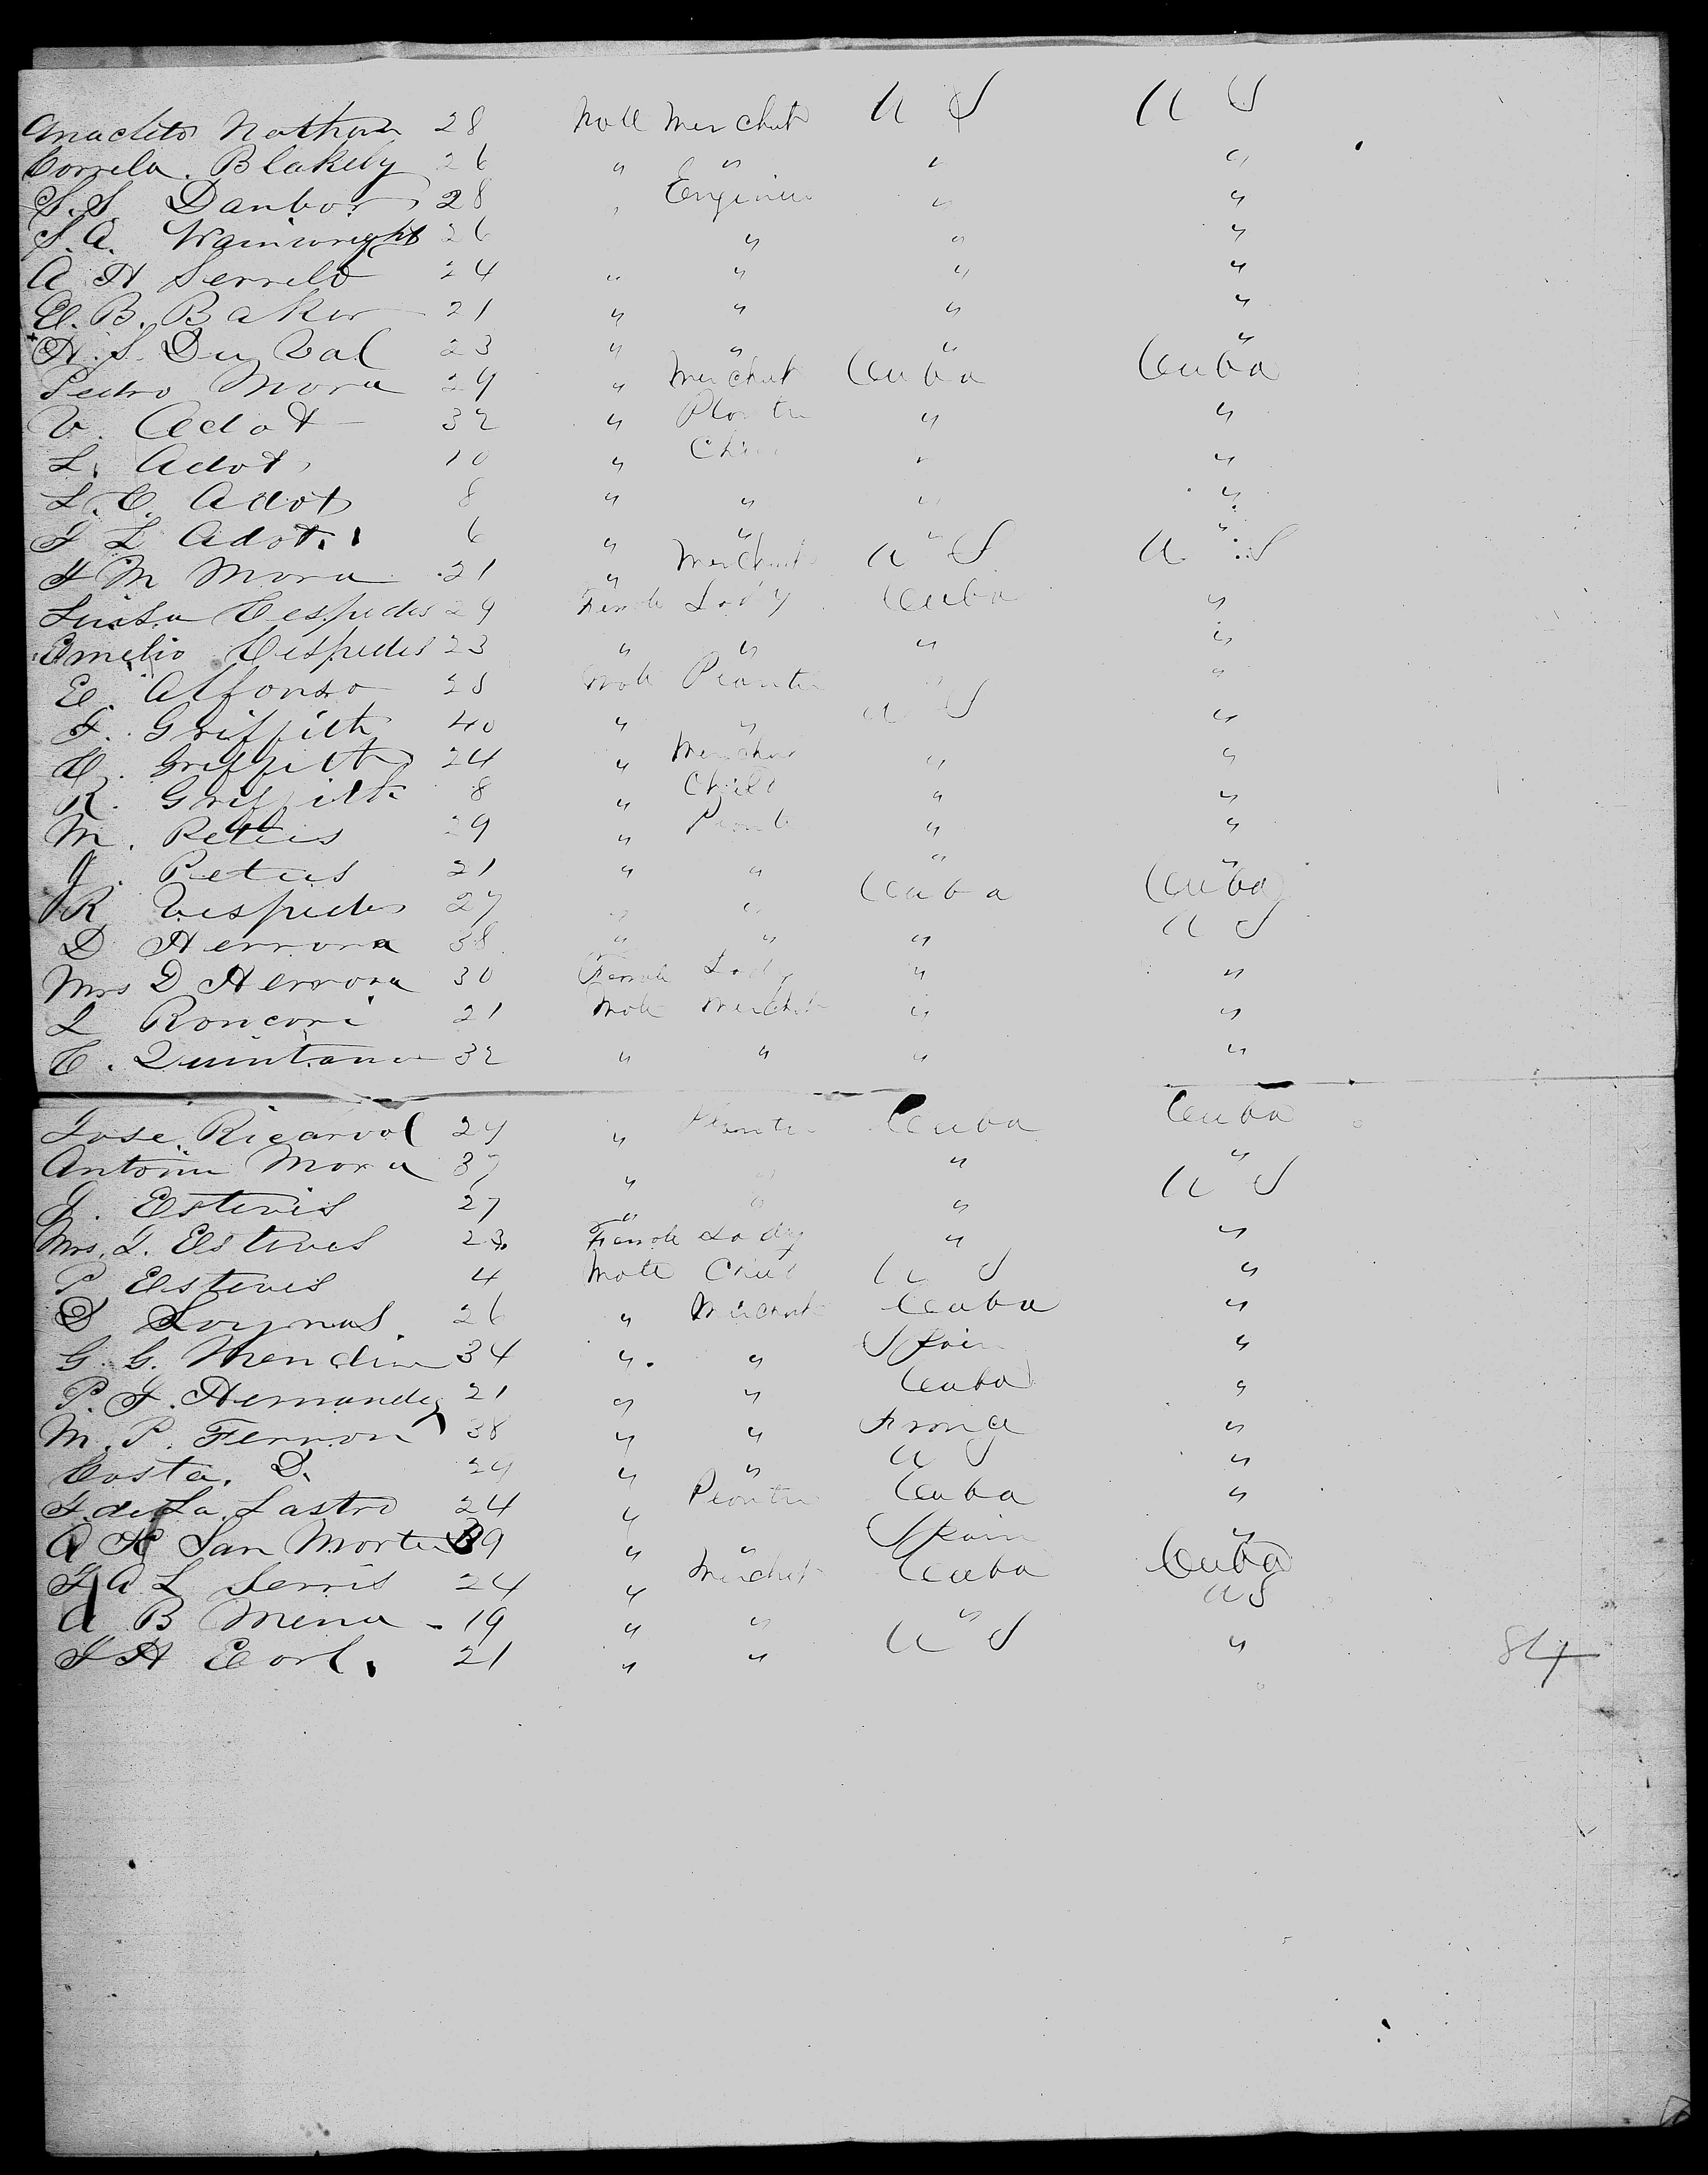 Anacleto Nathan 28 Male Merchat U S U S
Correla. Blakely 26 " " " "
S. S. Danbor 28 " Engineer " "
S. A. Wainwright 26 " " "
A H Serrelo 24 " " " "
E. B. Baker 21 " " " "
H. S. Du Val 23 " " " "
Pedro Mora 29 " Merchat Cuba Cuba
V. Adot 32 " Plantr " "
L. Adot 10 " Child " "
L. C. Adot 8 " " " "
F L Adot 6 " " " "
F M Mora 21 " Merchat U S U S
Luisa Cespedes 29 Female Lady Cuba "
Emelio Cespedes 23 " " " "
E. Alfonso 28 Male Plantr " "
F. Griffith 40 " " U S "
C. Griffith 24 " Merchat " "
R. Griffith 8 " Child " "
M. Peteis 29 " Plantr " "
J. Peteis 21 " " " "
R Cespedes 27 " " Cuba Cuba
D Herrora 38 " " " U S
Mrs D Herrora 30 Female Lady " "
L Roncori 21 Male Merchat " "
C. Quintana 32 " " " "
Jose Ricarvol 29 " Plantr Cuba Cuba
Antoin Mora 37 " " " "
J. Estevis 27 " " " U S
Mrs. J. Esteves 23 Female Lady " "
P Estevis 4 Male Child U S "
D Loynas 26 " Merchat Cuba "
G. G. Mendin 34 " " Spain "
P. F. Hernandez 21 " " Cuba "
M. P. Ferron 38 " " France "
Costa. D. 29 " " U S "
F. de La Lastro 24 " Plantr Cuba "
A R San Morten 39 " " Spain "
F A L Serris 24 " Merchat Cuba Cuba
A B Mena 19 " " " U S
F H Earl. 21 " " U S "
84